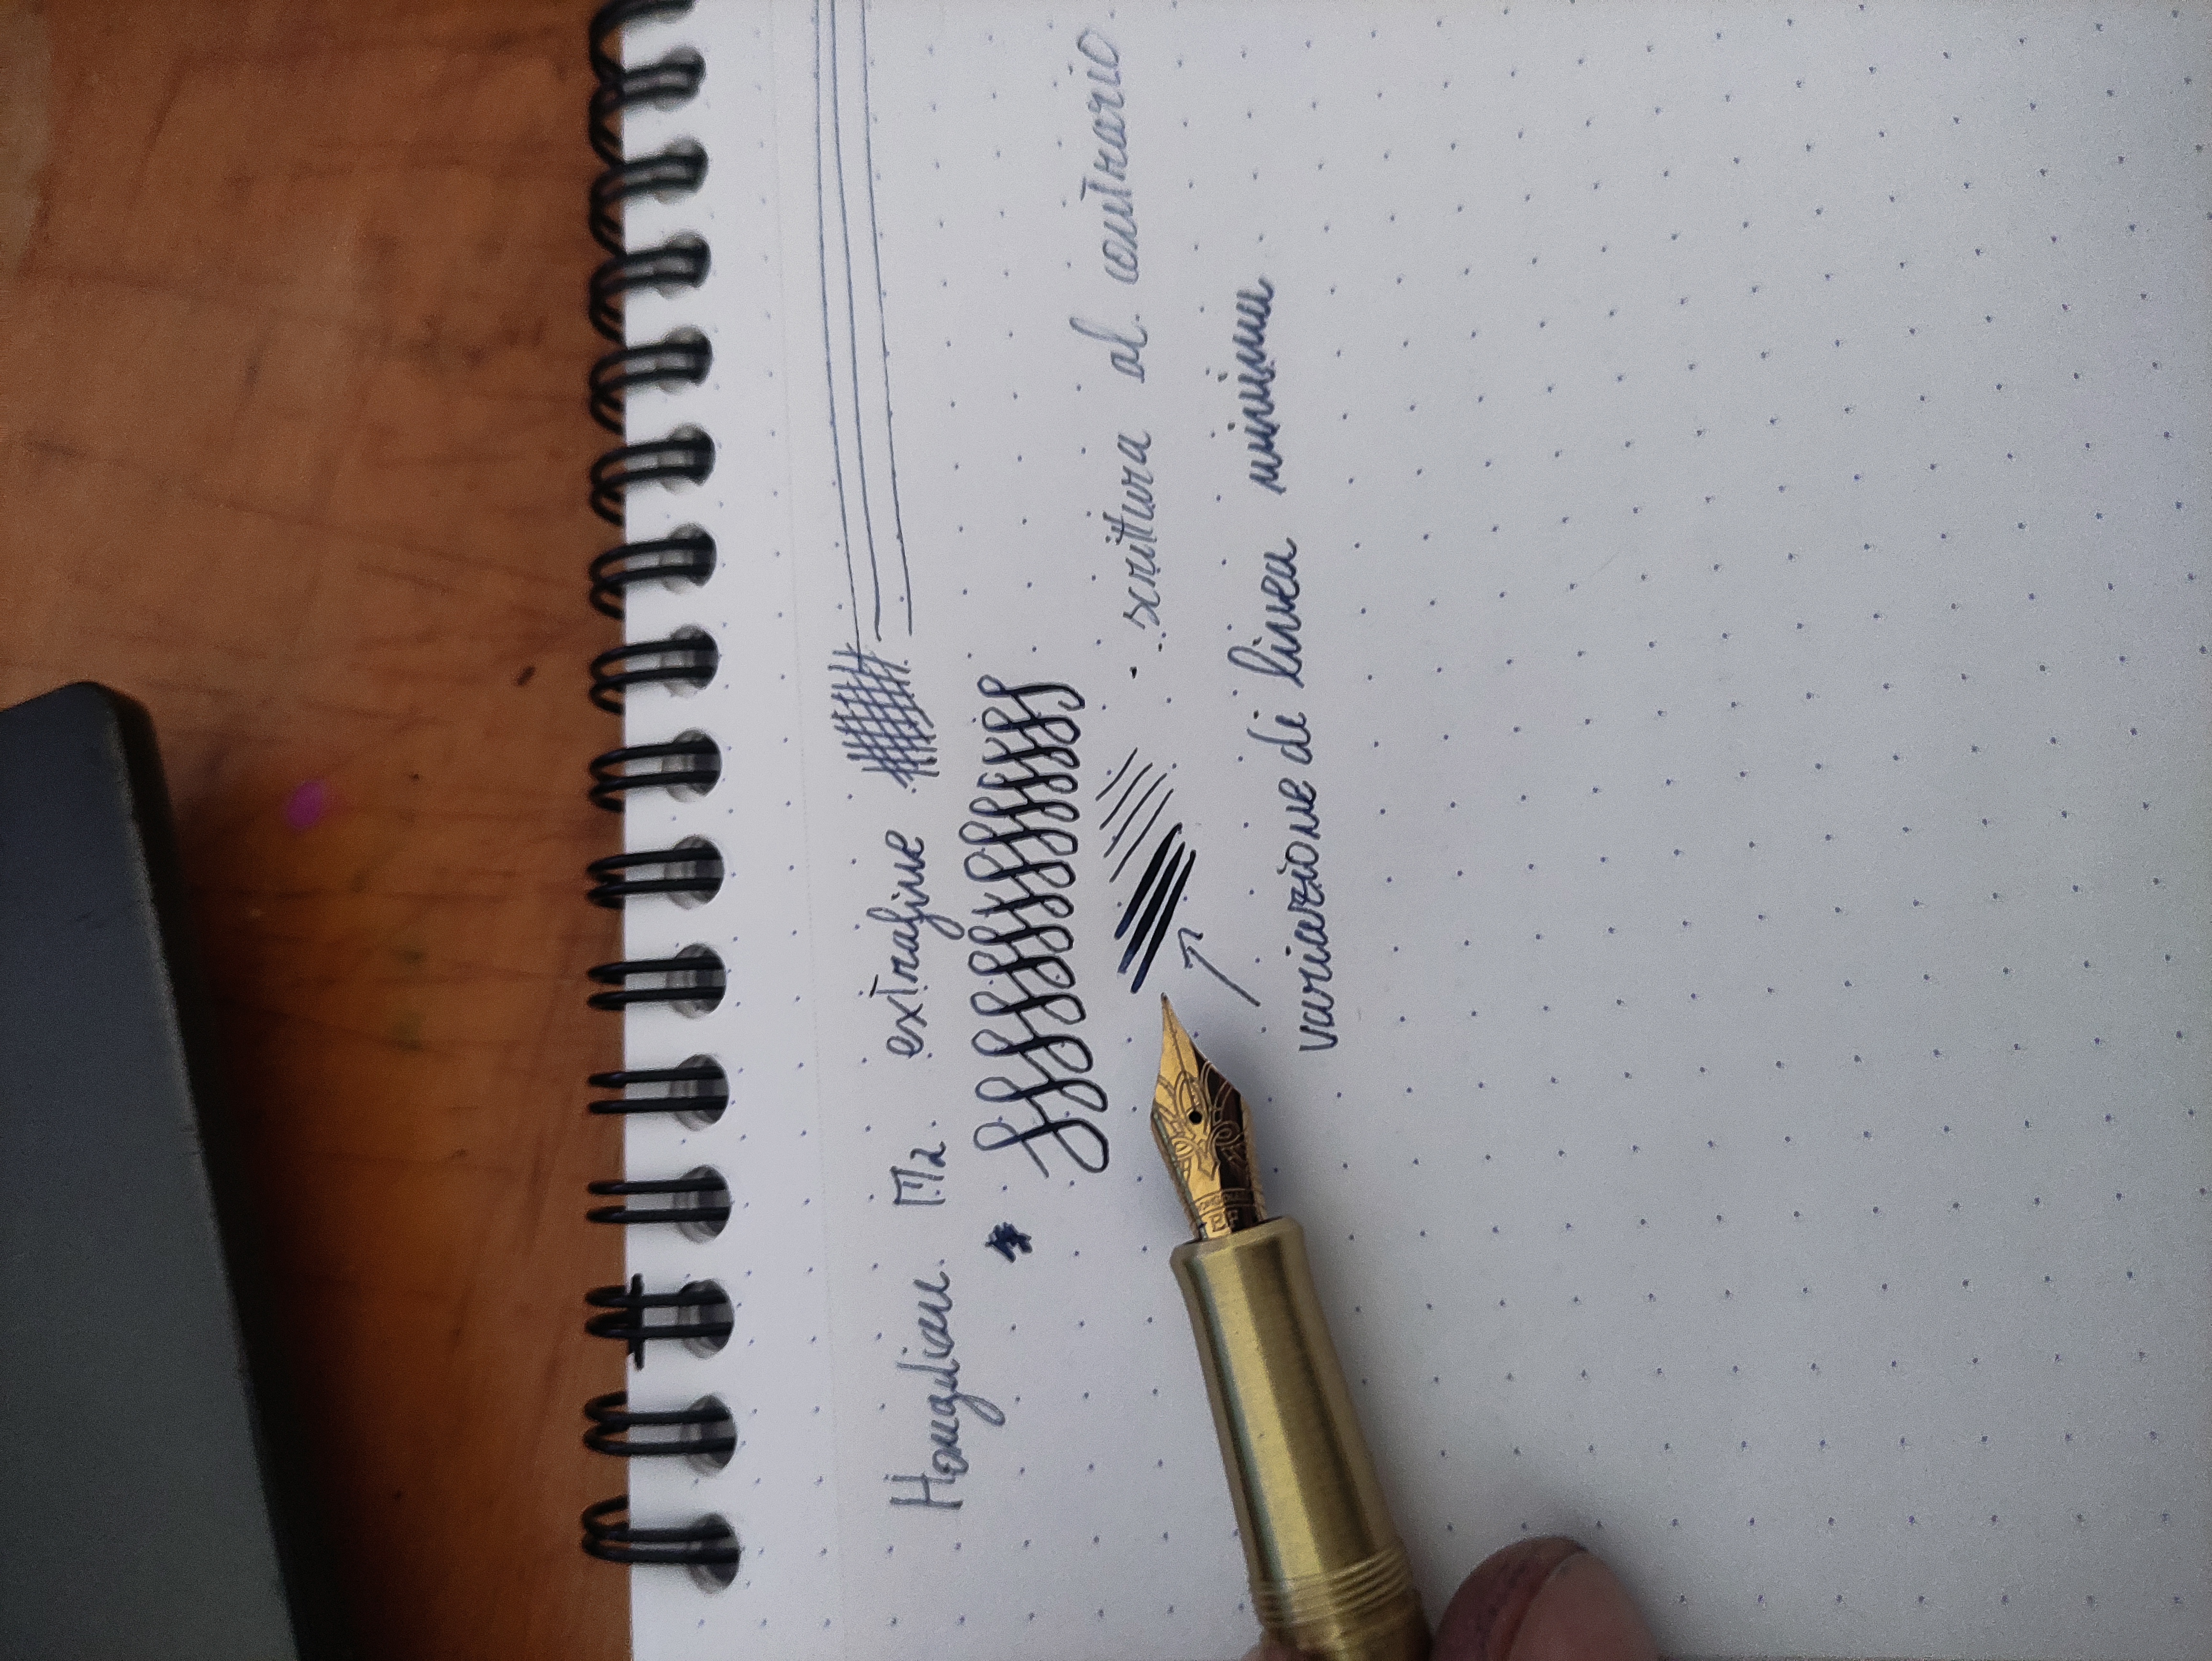 Hongdian M2 extrafine
scrittura al contrario
variazione di linea minima